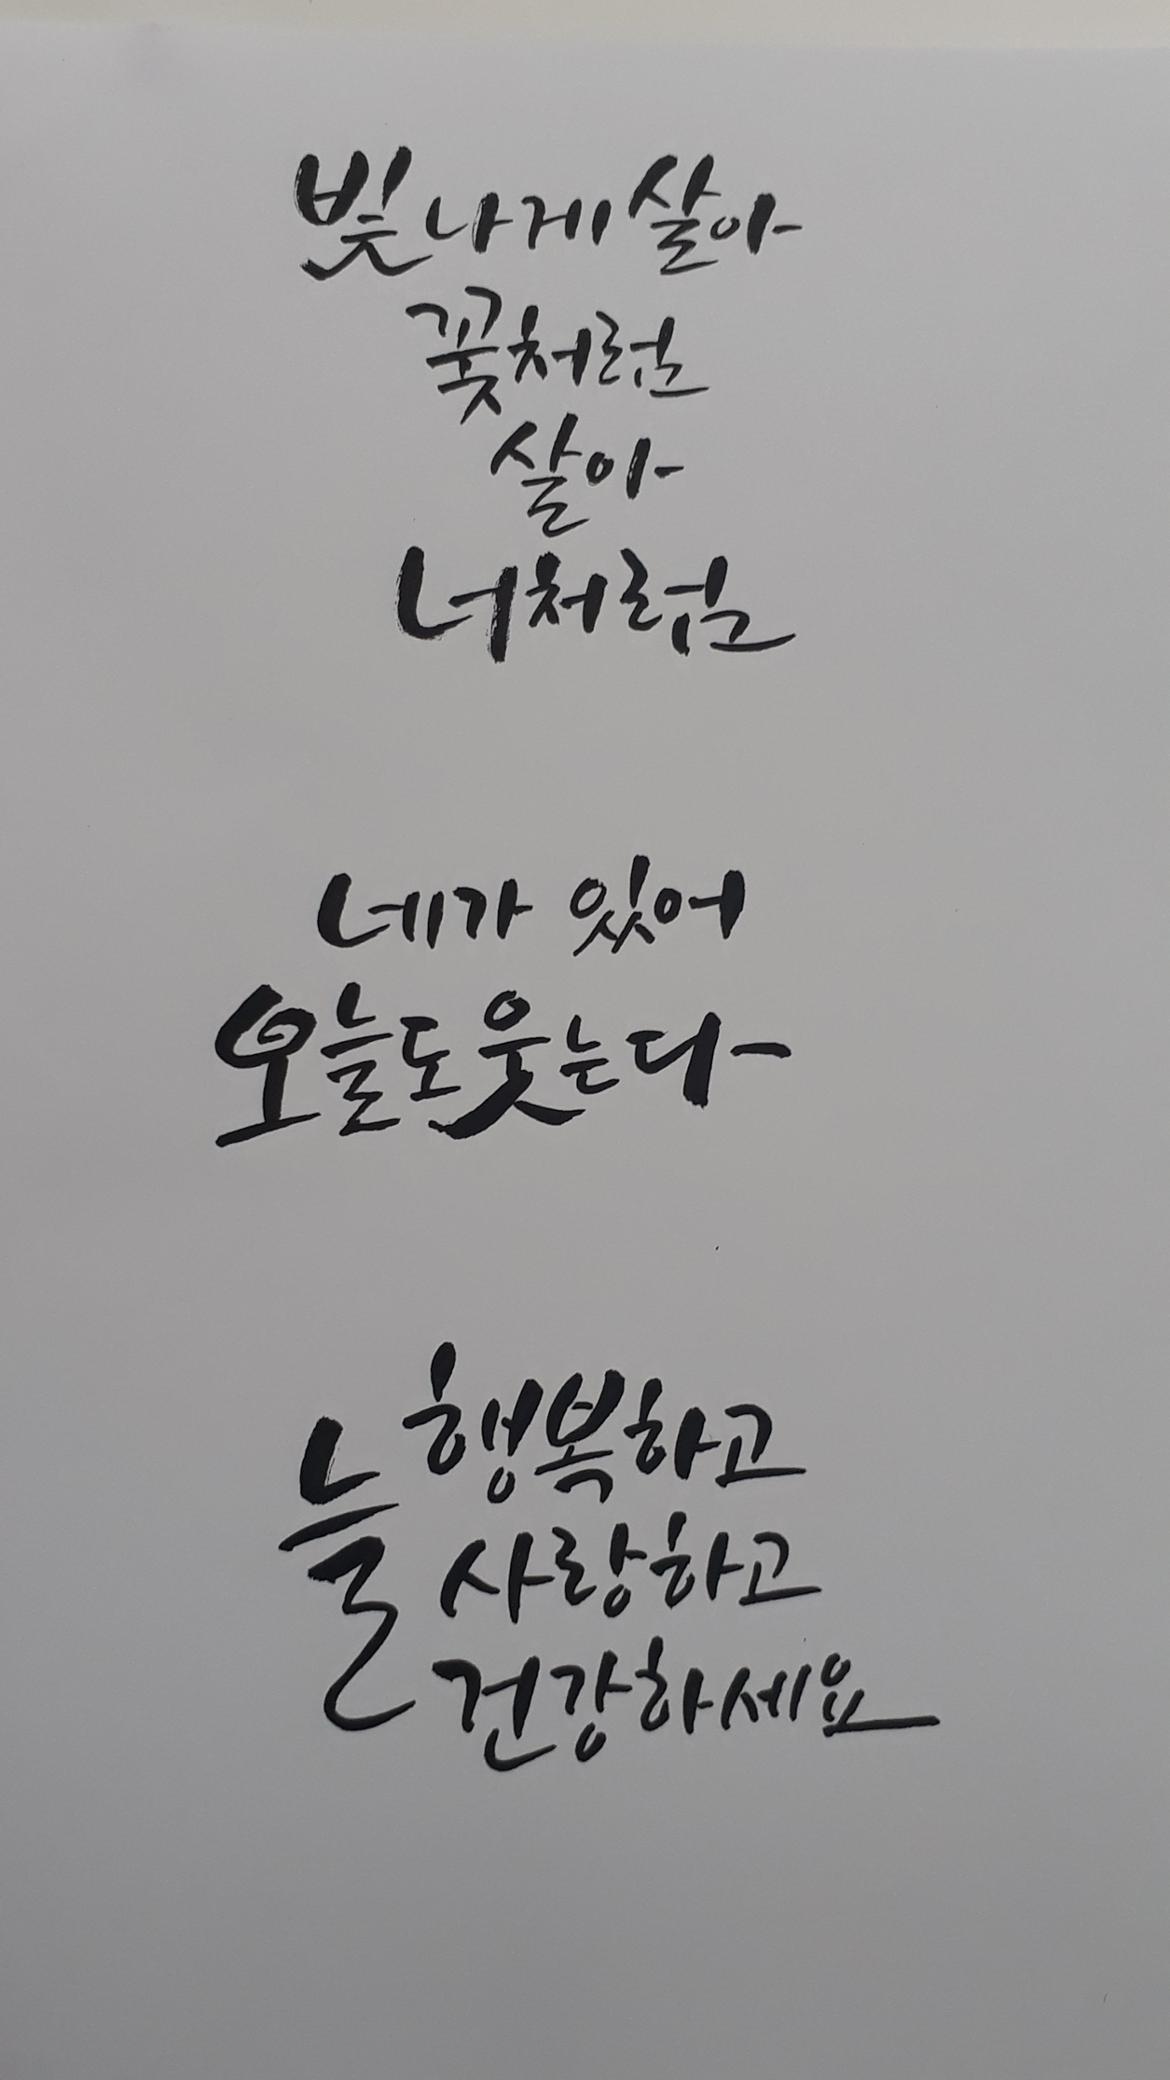 빛나게 살아
꽃처럼
살아
너처럼
네가 있어
오늘도 웃는다
늘 행복하고
사랑하고
건강하세요